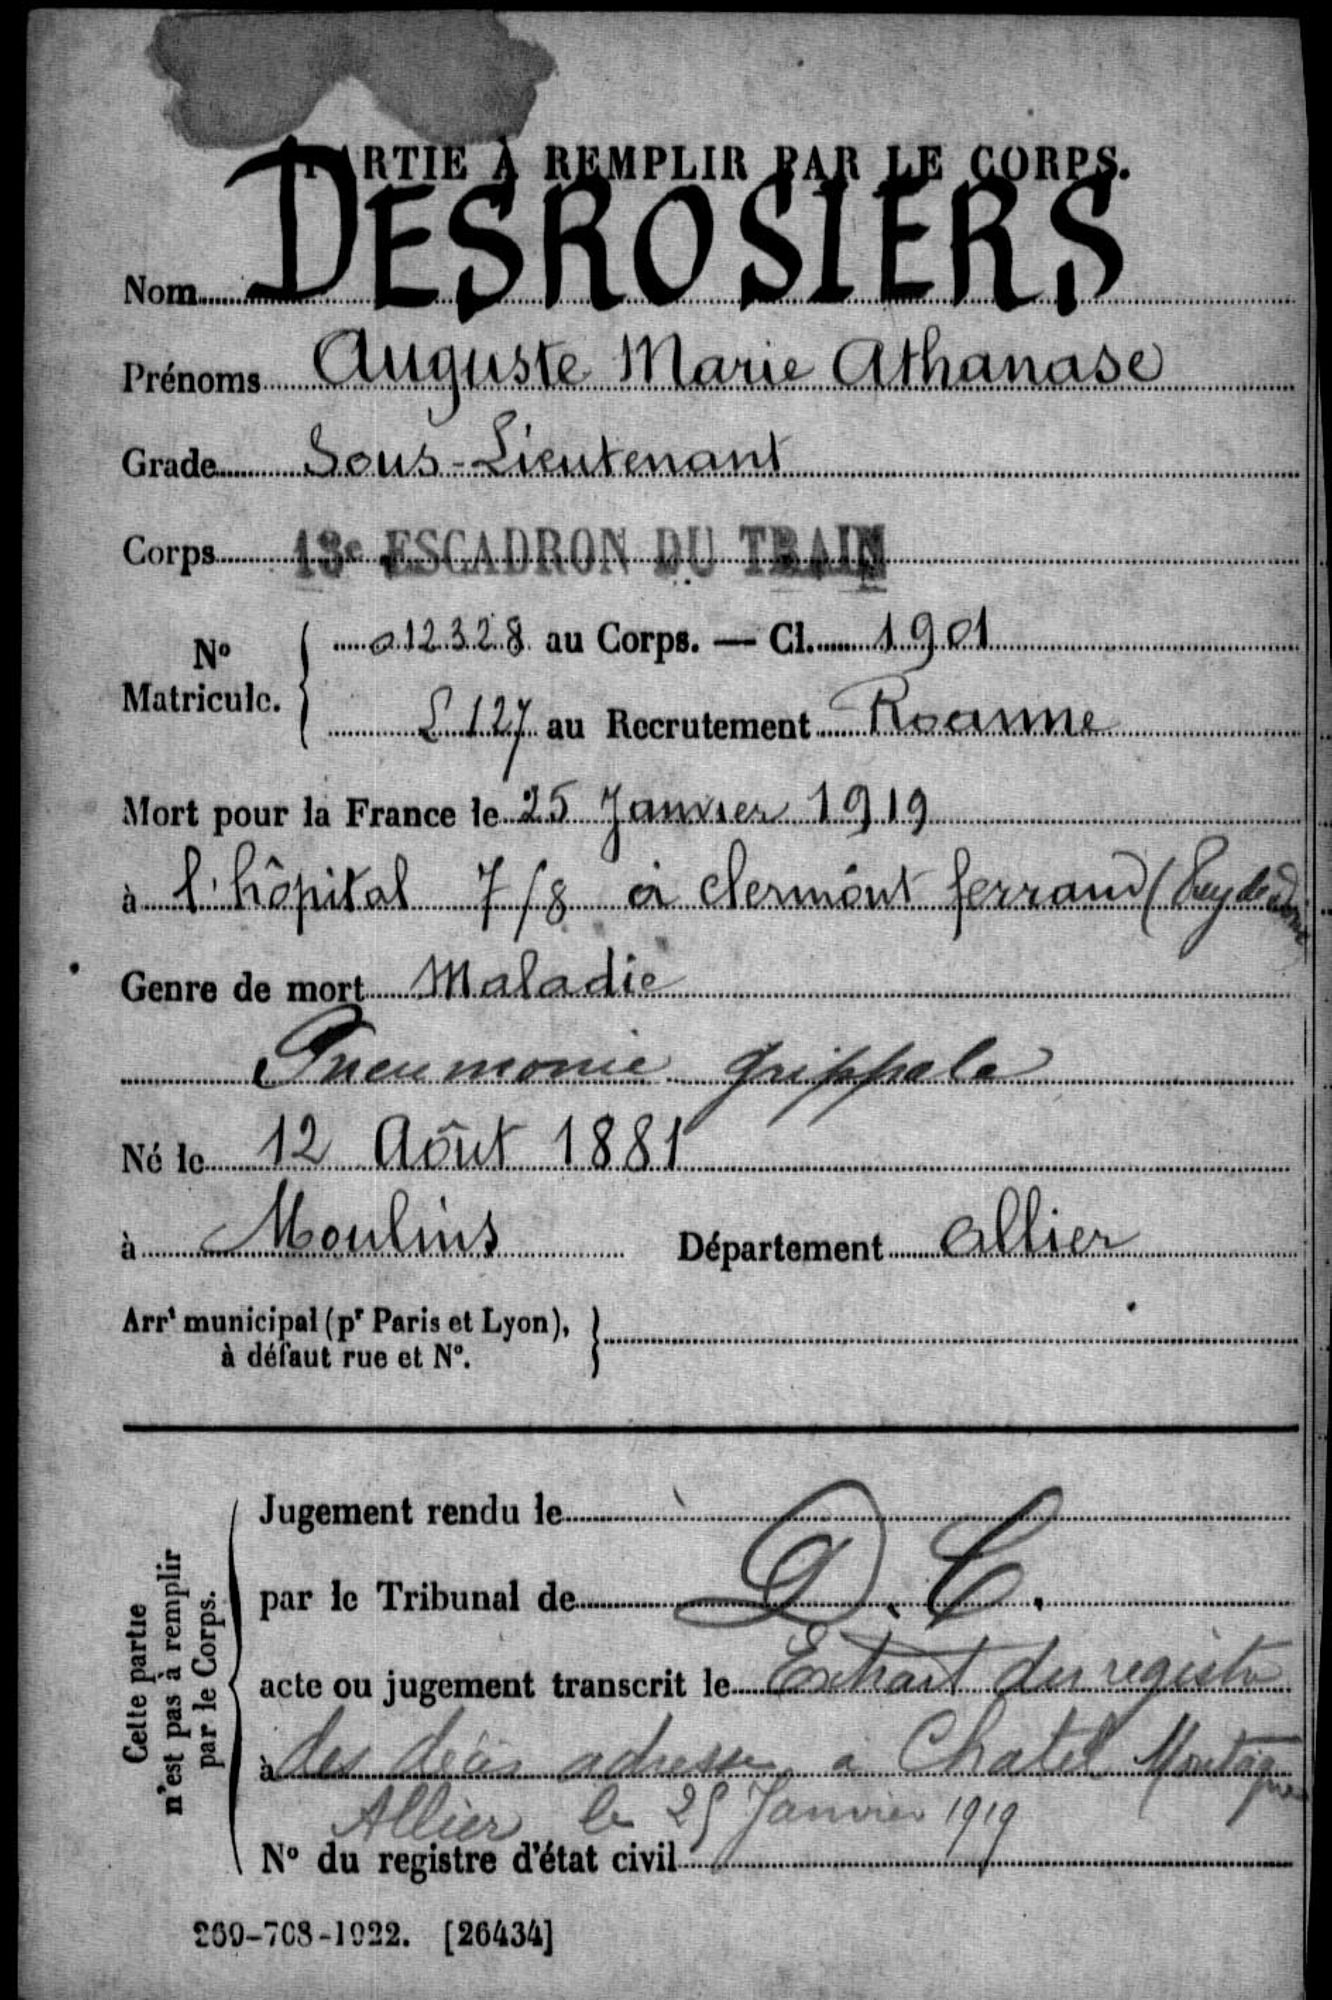 PARTIE À REMPLIR PAR LE CORPS.
Nom DESROSIERS
Prénoms Auguste Marie Athanase
Grade Sous-Lieutenant
Corps 13e ESCADRON DU TRAIN
No Matricule. { 012328 au Corps. — Cl. 1901
L 127 au Recrutement Roanne
Mort pour la France le 25 Janvier 1919
à l'hôpital 7/8 à clermont ferrand (Puy de Dome
Genre de mort Maladie
Pneumonie grippale
Né le 12 Août 1881
à Moulins Département Allier
Arrt municipal (pr Paris et Lyon), }
à défaut rue et No.
Cette partie
n'est pas à remplir
par le Corps.
Jugement rendu le
par le Tribunal de D.C.
acte ou jugement transcrit le Extrait du registre
à des décès adressé à Chatel Montagne
Allier le 25 Janvier 1919
No du registre d'état civil
269-708-1922. [26434]